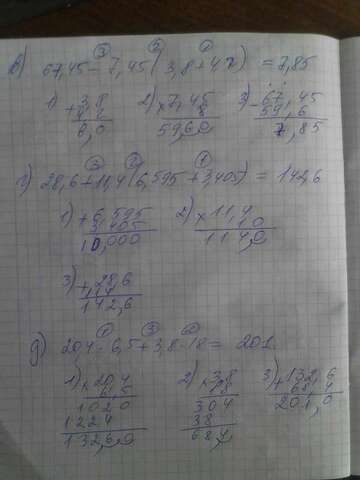 ③ ② ①
в) 67,45 - 7,45 ( 3,8 + 4,2) = 7,85
1) + 3,8 2) × 7,45 3) - 67,45
4,2 8 59,6
8,0 59,60 7,85
③ ② ①
г) 28,6 + 11,4 (6,595 + 3,405) = 142,6
1) + 6,595 2) × 11,4
3,405 10
10,000 114,0
3) + 28,6
114
142,6
① ③ ②
д) 20,4 · 6,5 + 3,8 · 18 = 201
1) × 20,4 2) × 3,8 3) + 132,6
6,5 18 68,4
1020 304 201,0
1224 38
132,60 68,4